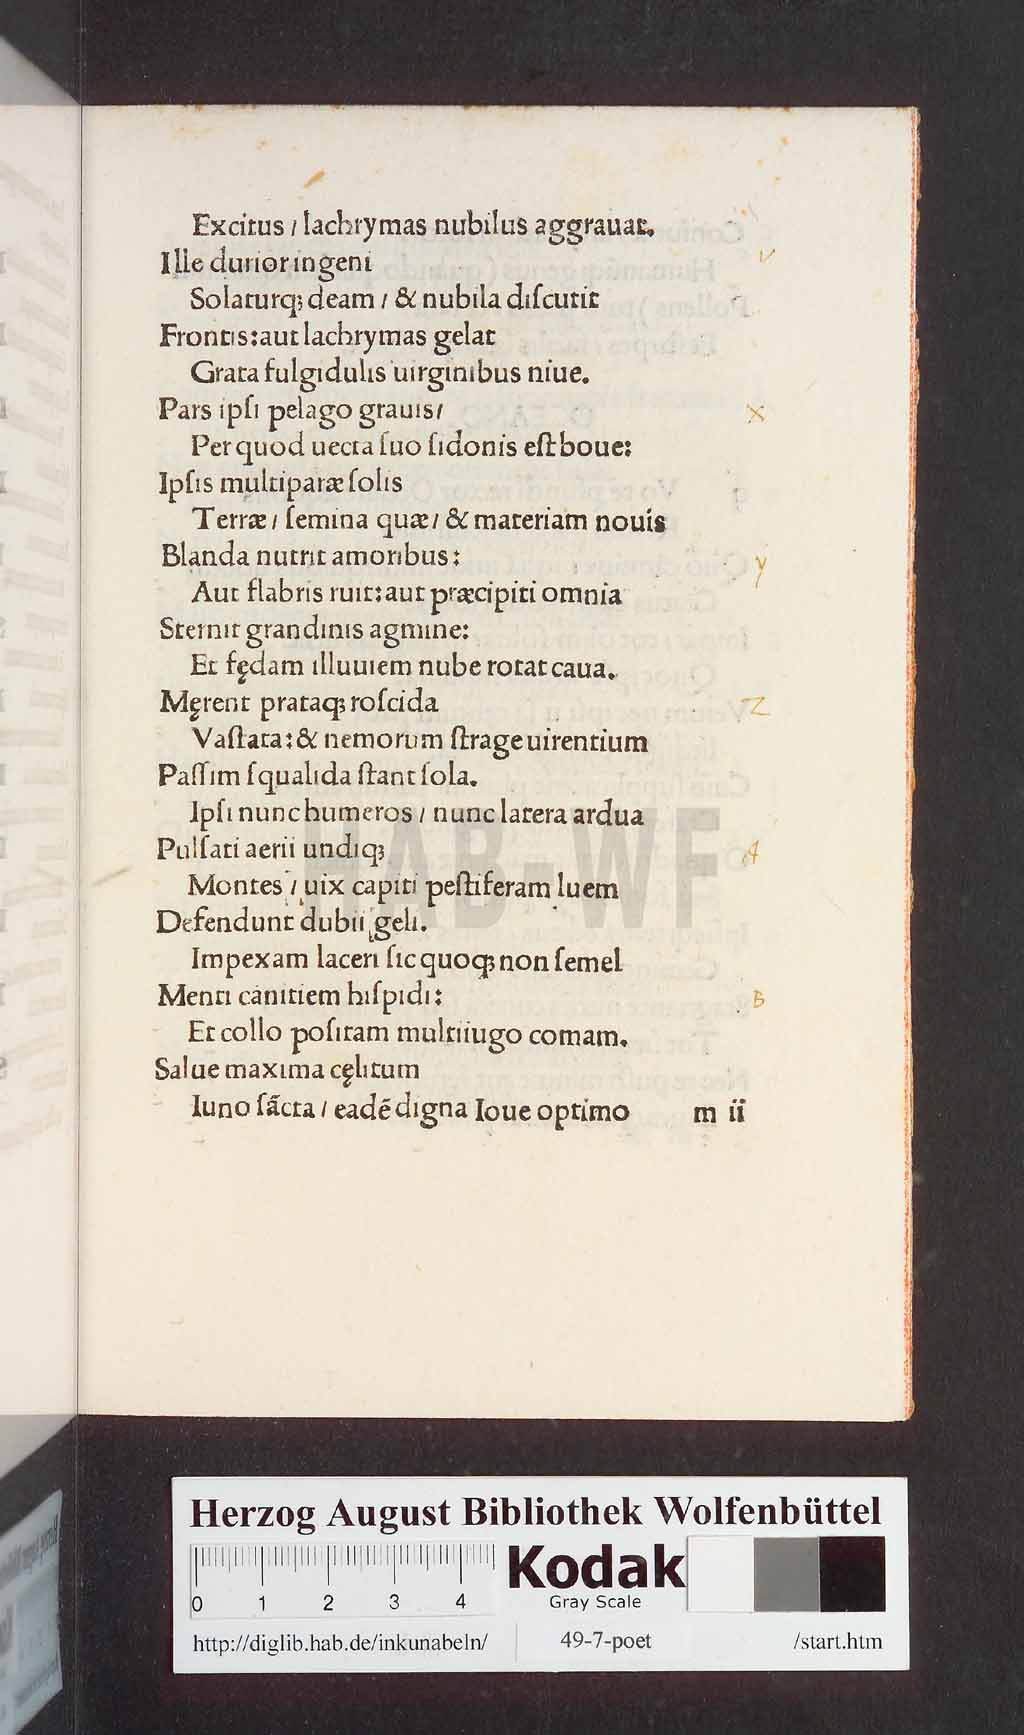 Excitus / lachrymas nubilus aggrauat.
Ille durior ingeni
Solaturqꝫ deam / & nubila diſcutit
Frontis: aut lachrymas gelat
Grata fulgidulis uirginibus niue.
Pars ipſi pelago grauis /
Per quod uecta ſuo ſidonis eſt boue:
Ipſis multiparæ ſolis
Terræ / ſemina quæ / & materiam nouis
Blanda nutrit amoribus:
Aut flabris ruit: aut præcipiti omnia
Sternit grandinis agmine:
Et fędam illuuiem nube rotat caua.
Męrent prataqꝫ roſcida
Vaſtata: & nemorum ſtrage uirentium
Paſſim ſqualida ſtant ſola.
Ipſi nunc humeros / nunc latera ardua
Pulſati aerii undiqꝫ
Montes / uix capiti peſtiferam luem
Defendunt dubii geli.
Impexam laceri ſic quoqꝫ non ſemel
Menti canitiem hiſpidi:
Et collo poſitam multiiugo comam.
Salue maxima cęlitum
Iuno ſãcta / eadē digna Ioue optimo m ii
v
x
y
z
A
B
HAB-WF
Herzog August Bibliothek Wolfenbüttel
Kodak
Gray Scale
0 1 2 3 4
http://diglib.hab.de/inkunabeln/ 49-7-poet /start.htm